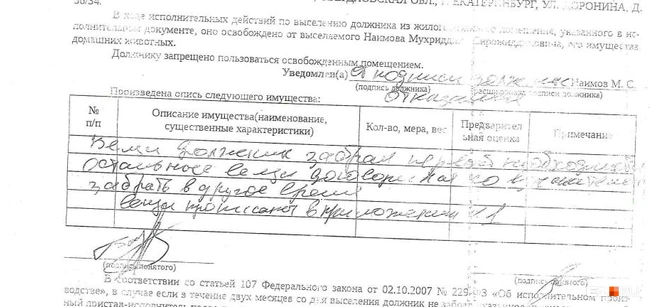 СВЕРДЛОВСКАЯ ОБЛ., Г. ЕКАТЕРИНБУРГ, УЛ. ДОРОНИНА, Д.
50/34.
В ходе исполнительных действий по выселению должника из жилого помещения, указанного в ис-
полнительном документе, оно освобождено от выселяемого Наимова Мухриддина его имущества
домашних животных.
Должнику запрещено пользоваться освобожденным помещением.
Уведомлен(а) от подписи должник Наимов М. С.
(подпись должника) (расшифровка подписи должника)
отказался
Произведена опись следующего имущества:
№ п/п Описание имущества(наименование, существенные характеристики) Кол-во, мера, вес Предварительная оценка Примечание
Вещи должник забрал первой необходимости
остальные вещи договорился со взыскателем
забрать в другое время
вещи прописаны в приложении № 1
(подпись понятого)
(подпись понятого)
В соответствии со статьей 107 Федерального закона от 02.10.2007 № 229-ФЗ «Об исполнительном произ-
водстве», в случае если в течение двух месяцев со дня выселения должник не забрал